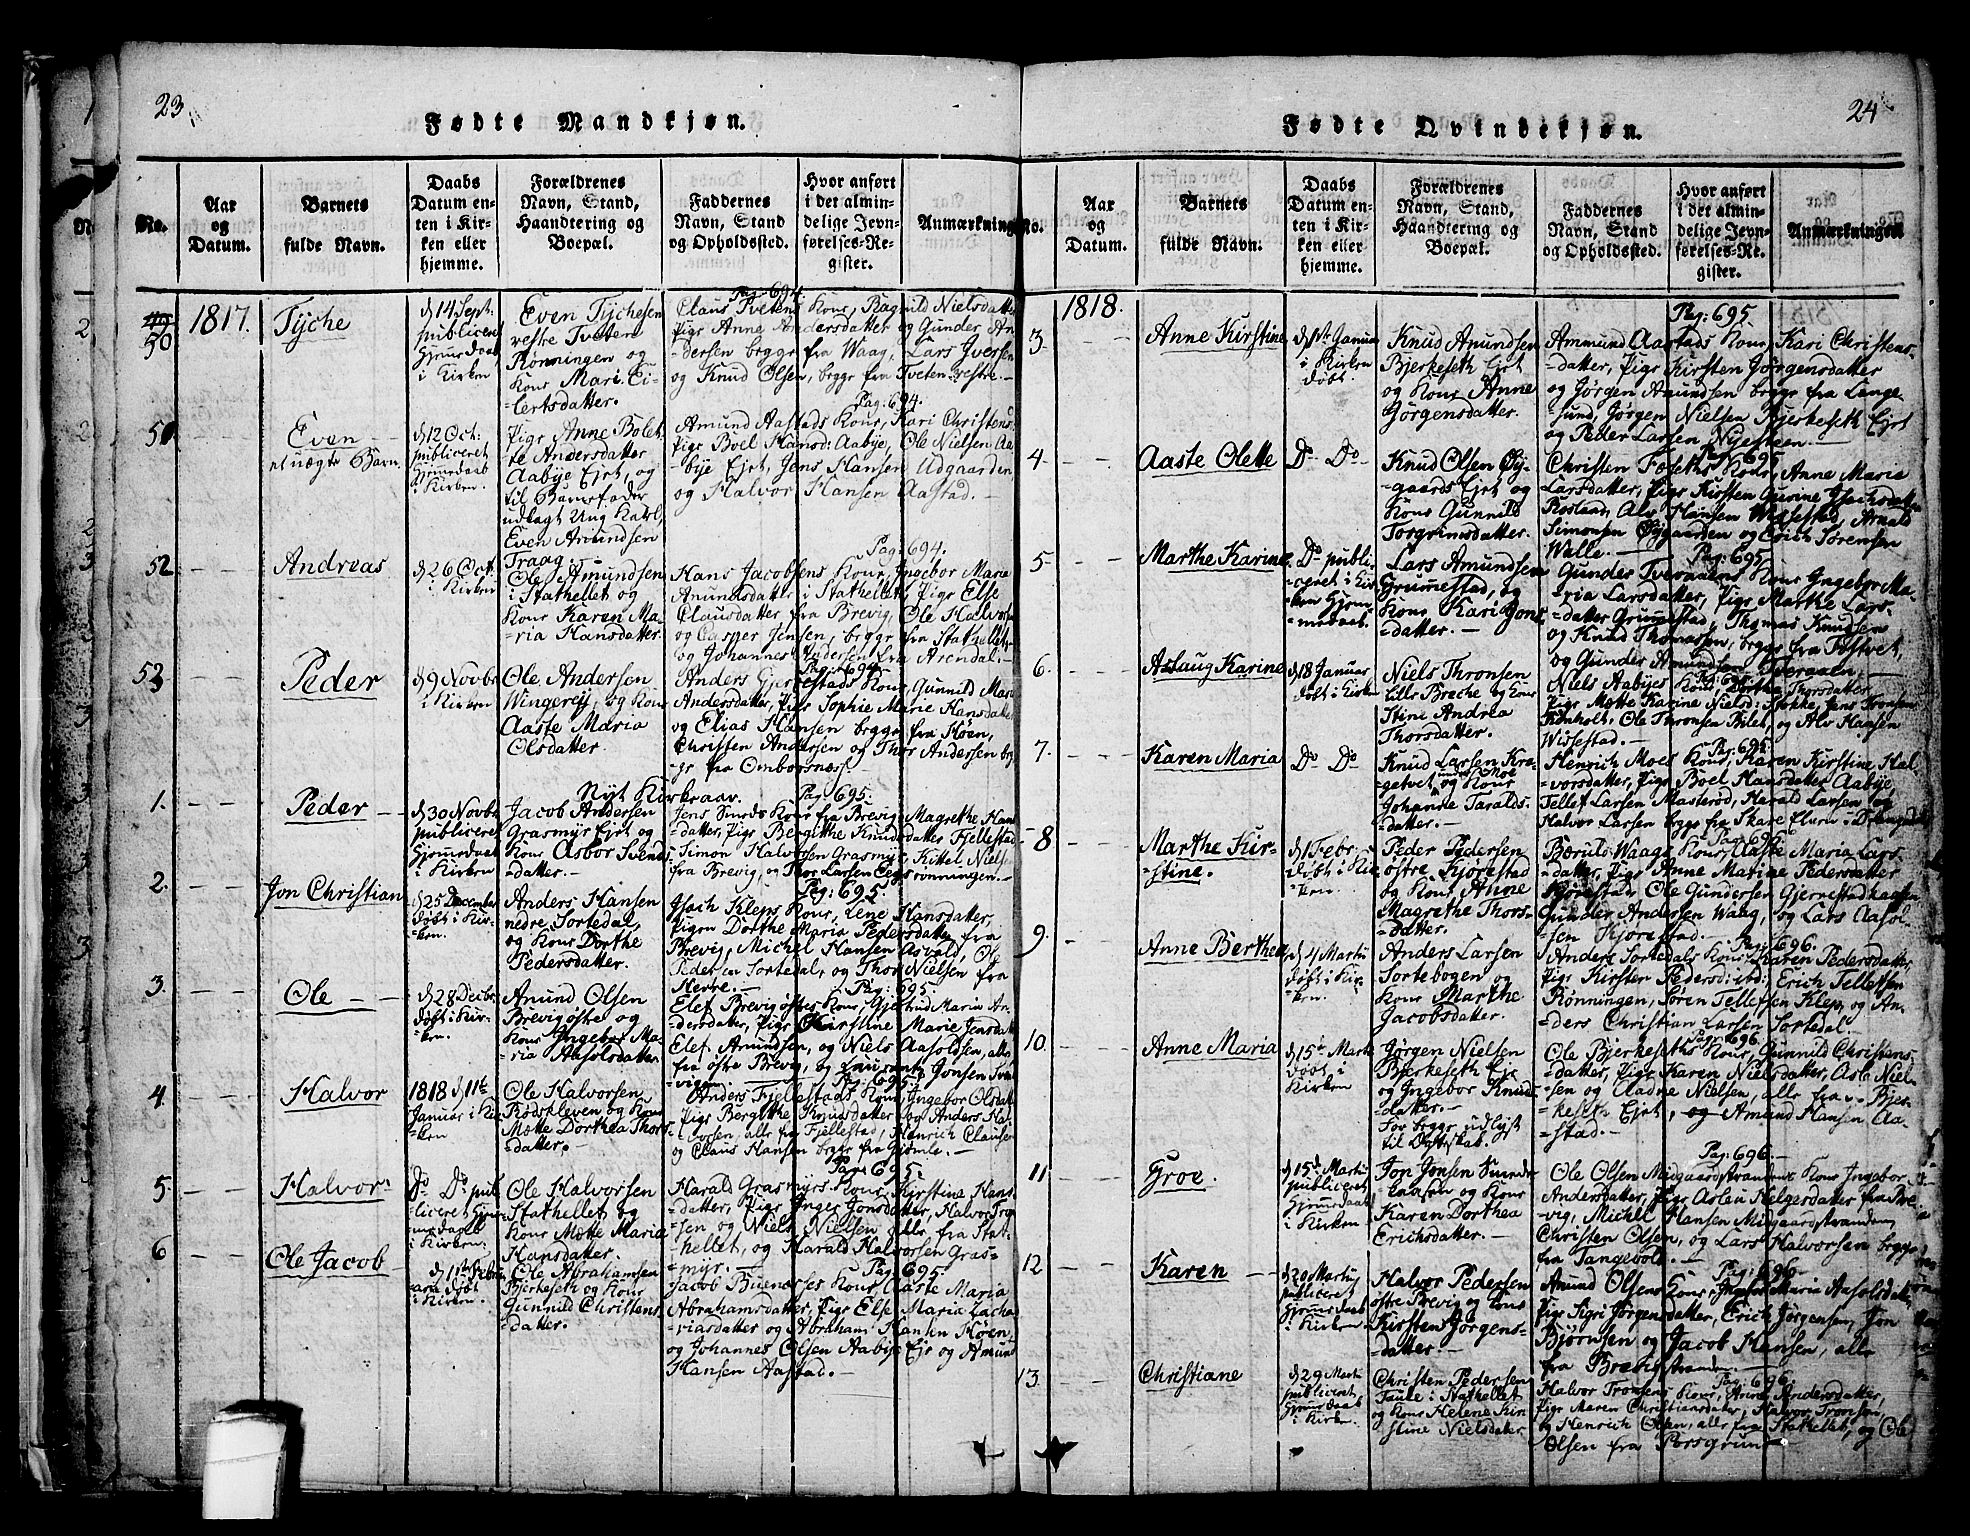 23
Fødte Mandkjøn.
No.
Aar og Datum.
Barnets fulde Navn.
Daabs Datum enten i Kirken eller hjemme.
Forældrenes Navn, Stand, Haandtering og Boepæl.
Faddernes Navn, Stand og Opholdssted.
Hvor anført i det almindelige Jevnførelses-Register.
Anmærkning
50
1817.
Tyche
d 14 Sept.
publiceret
Hjemmedaab
i Kirken
Even Tychesen
vestre Tveten
Rønningen og
Kone Mari Ei-
lertsdatter.
Pag: 694
Claus Tvetens Kone, Ragnild Nielsdatter
Pige Anne Andersdatter og Gunder An-
dersen begge fra Waag, Lars Iversen
og Knud Olsen, begge fra Tveten vestre.
51
Even
et uægte Barn.
d 12 Oct:
publiceret
Hjemedaab
i Kirken.
Pige Anne Bolet-
te Andersdatter
Aabye Ejet, og
til Barnefader
udlagt Ung Karl,
Even Amundsen
Traag.
Pag: 694.
Amund Aastads Kone, Kari Christens:
Pige Boel Hansd: Aabye, Ole Nielsen Aa-
bye Ejet, Jens Hansen Udgaarden
og Halvor Hansen Aastad.
52
Andreas
d 26 Oct.
i Kirken
Ole Amundsen
i Stathellet og
Kone Karen Ma-
ria Hansdatter.
Pag: 694.
Hans Jacobsens Kone, Ingebor Maria
Amundsdatter i Stathellet, Pige Else
Clausdatter fra Brevig, Ole Halvors:
og Casper Jensen, begge fra Stathellet,
og Johannes Pedersen fra Arendal.
53
Peder
d 9 Novbr
i Kirken
Ole Andersen
Wingerej, og Kone
Aaste Maria
Olsdatter.
Pag: 694
Anders Gjernestads Kone, Gunnild Marie
Andersdatter, Pige Sophie Marie Hansdatter
og Elias Hansen begge fra Høen,
Christen Andersen og Thor Andersen beg-
ge fra Ombor­snæs.
Nyt Kirkeaar.
1.
Peder
d 30 Novbr
publiceret
Hjemmedaab
i Kirken
Jacob Andersen
Grasmyr Ejet og
Kone Asbor Svends-
datter.
Pag: 695.
Jens Sunds Kone fra Brevig Magrethe Hans
datter, Pige Bergithe Knudsdatter Fjellestad
Simon Halvorsen Grasmyr, Kittel Niels:
fra Brevig, og Thor Larsen Eegsrønningen.
2.
Jon Christian
d 25 December
døbt i Kir-
ken.
Anders Hansen
nedre Sortedal,
og Kone Dorthe
Pedersdatter.
Pag: 695.
Isach Kleps Kone, Lene Hansdatter,
Pigen Dorthe Maria Pedersdatter fra
Brevig, Michel Hansen Asvald, Ole
Pedersen Sortedal, og Thor Nielsen fra
Herre.
3.
Ole
d 28 Decbr.
døbt i Kir-
ken.
Amund Olsen
Brevig østre og
Kone Ingebor Ma-
ria Aasolsdatter
Pag: 695.
Elef Brevig østres Kone, Gjertrud Maria An-
dersdatter, Pige Kirstine Marie Jensdatter
Elef Amundsen, og Niels Aasoldsen, alle
fra østre Brevig, og Laurantz Jonsen
4.
Halvor
1818 d 11te
Januar i Kir-
ken
Ole Halvorsen
Rødskleven og Kone
Mætte Dorthea Thors-
datter.
Pag: 695
Anders Fjellestads Kone Ingebor Olsdatter
Pige Bergithe Knudsdatter og Anders Hal-
vorsen, alle fra Fjellestad, Henrich Clausen
og Claus Hansen begge fra Gjømle.
5.
Halvor
Do Do pub
liceret Hjem-
medaab
i Kirken
Ole Halvorsen
Stathellet og
Kone Mætte Maria
Hansdatter.
Pag: 695.
Harald Grasmyrs Kone, Kirstine Hans-
datter, Pige Inger Jonsdatter, Halvor
sen og Niels Nielsen alle fra Stat-
hellet, og Harald Halvorsen Gras-
myr.
6
Ole Jacob
d 1te Febru
arii døbt
i Kirken.
Ole Abrahamsen
Bjerkeseth og Kone
Gunnild Christens-
datter.
Pag: 695.
Jacob Kone, Aaste Maria
Abrahamsdatter, Pige Else Maria Zacha-
riasdatter og Abraham Hansen Høen,
og Johannes Olsen Aabye Ejet og Amund
Hansen Aastad.
24
Fødte Qvindekjøn.
No.
Aar og Datum.
Barnets fulde Navn.
Daabs Datum enten i Kirken eller hjemme.
Forældrenes Navn, Stand, Haandtering og Boepæl.
Faddernes Navn, Stand og Opholdssted.
Hvor anført i det almindelige Jevnførelses-Register.
Anmærkninger
1818.
3
Anne Kirstine
d 1te Januar
i Kirken
døbt.
Knud Amundsen
Bjerkeseth Ejet
og Kone Anne
Jørgensdatter.
Pag: 695
Ammund Aastads Kone, Kari Christens-
datter, Pige Kirsten Jørgensdatter
og Jørgen Amundsen begge fra Lange-
sund, Jørgen Nielsen Bjerkeseth Ejet
og Peder Larsen Nyesteen.
4
Aaste Olette
Do Do
Knud Olsen Øy-
gaards Ejet og
Kone Gunnild
Torgrimsdatter.
Pag: 695
Christen Foseths Kone, Anne Maria
Larsdatter, Pige Kirsten Gurine Isachsdatter
Rostaa, Ale Hansen Wissestad, Arnold
Simonsen Øygaarden og Erich Sørensen
Walle.
5
Marthe Karine
Do publi-
ceret i Kir-
ken Hjem-
medaab.
Lars Amundsen
Grummestad, og
Kone Kari Jons-
datter.
Pag: 695
Gunder Tveraaens Kone Ingebor Ma-
ria Larsdatter, Pige Marthe Lars-
datter Grumestad, Thomas Knudsen
og Knud Thomasen, begge fra Fostvet,
og Gunder Amundsen Tveraaen.
6.
Aslaug Karine
d 18 Januar
døbt i Kirken
Niels Thronsen
Lille Brække og Kone
Stine Andrea
Thorsdatter.
Pag: 695
Niels Aabyes Kone, Dorthe Thorsdatter,
Pige Mætte Karine Nielsd: Stokke, Jens Tronsen
Ole Thronsen Bilet, og Alv Haasen
Wissestad.
7.
Karen Maria
Do Do
Knud Larsen Kro-
getvet under Moe
og Kone
Johanne Taralds-
datter.
Pag: 695.
Henrich Moes Kone, Karen Kirstine Hal-
vorsdatter, Pige Boel Hansdatter Aabye,
Tellef Larsen Masterød, Harald Larsen og
Halvor Larsen begge fra Skare
8
Marthe Kir-
stine.
d 1 Febr.
døbt i Kir-
ken.
Peder Pedersen
østre Kjørestad
og Kone Anne
Magrethe Thors-
datter.
Pag: 696
Bærulv Waags Kone, Aaste Maria Lars-
datter, Pige Anne Marine Pedersdatter
Kjørestad, Ole Gundersen Gjernestadhaugen,
Gunder Andersen Waag, og Lars Aasol-
sen Kjørestad.
9.
Anne Berthea
d 4 Martii
døbt i Kir-
ken.
Anders Larsen
Sortebogen og
Kone Marthe
Jacobsdatter.
Pag: 696.
Anders Sortedals Kone Karen Pedersdatter,
Pige Kirsten Pedersd: ibid; Erich Tellefsen
Rønningen, Søren Tellefsen Klep, og An-
ders Christian Larsen Sortedal.
10.
Anne Maria
d 15de Martii
døbt i
Kirken
Jørgen Nielsen
Bjerkeseth Eje
og Ingebor Knuds-
datter.
For begge udlyst
til Ægteskab.
Pag: 696.
Ole Bjerkeseths Kone, Gunnild Christens-
datter, Pige Karen Nielsdatter, Asl: Niel-
sen og Aadne Nielsen, alle fra Bjer-
keseth Ejet, og Amund Hansen Aa-
stad.
11
Groe.
d 15de Martii
publiceret
Hjemmedaab
i Kirken
Jon Jonsen
og Kone
Karen Dorthea
Erichsdatter.
Pag: 696.
Ole Olsen Midgaardstrandens Kone Ingebor
Andersdatter, Pige Aslou Helgesdatter fra Bre-
vig, Michel Hansen Midgaardstranden,
Christen Olsen og Lars Halvorsen begge
fra Tangevold.
12
Karen
d 20 Martii
publiceret
Hjemmedaab
i Kirken
Halvor Pedersen
østre Brevig og Kone
Kirsten Jørgens-
datter.
Pag: 696
Amund Olsens Kone, Ingebor Maria Aasolsdatter,
Pige Sigri Jørgensdatter, Erich Jørgensen, Jon
Bjørnsen og Jacob Hansen, alle
fra Brevigstranden.
13.
Christiane
d 29 Martii
publiceret,
Hjemmedaab
i Kirken.
Christen Pedersen
Taule i Stathellet
og Kone Helene Kir-
stine Nielsdatter
Pag: 696.
Halvor Tronsens Kone, Anne Andersdatter,
Pige Maren Christiansdatter, Halvor Tronsen
og Henrich Olsen, alle fra Stathellet, og Ole
Olsen fra Porsgrund.